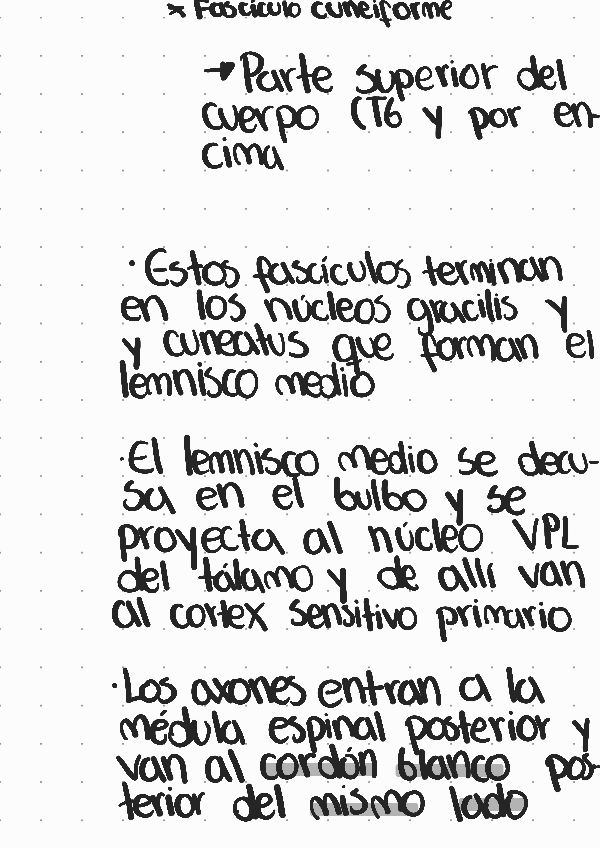 * Fascículo cuneiforme
→ Parte superior del
cuerpo (T6 y por en-
cima
· Estos fascículos terminan
en los núcleos gracilis y
y cuneatus que forman el
lemnisco medio
· El lemnisco medio se decu-
sa en el bulbo y se
proyecta al núcleo VPL
del tálamo y de allí van
al cortex sensitivo primario
· Los axones entran a la
médula espinal posterior y
van al cordón blanco pos-
terior del mismo lado